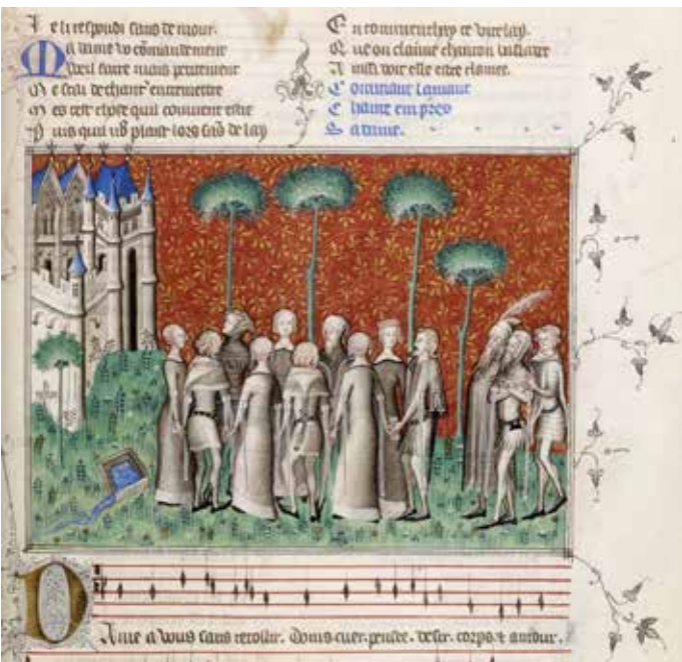 Je li respondi sans demour.
Ma dame vo comandement
Weil faire mais petitement
Me scai de chant entremettre
Mes cest chose quil couvient estre
Puis quil vꝰ plaist lors sãs delay
Encommencay ce virelay.
Que on claime chancon baladee
Ainsi doit elle estre clamee.
Comment lamant
chante empres
sa dame.
Dame a vous sans retollir. Doins cuer. pensee. desir. corps ⁊ amour.